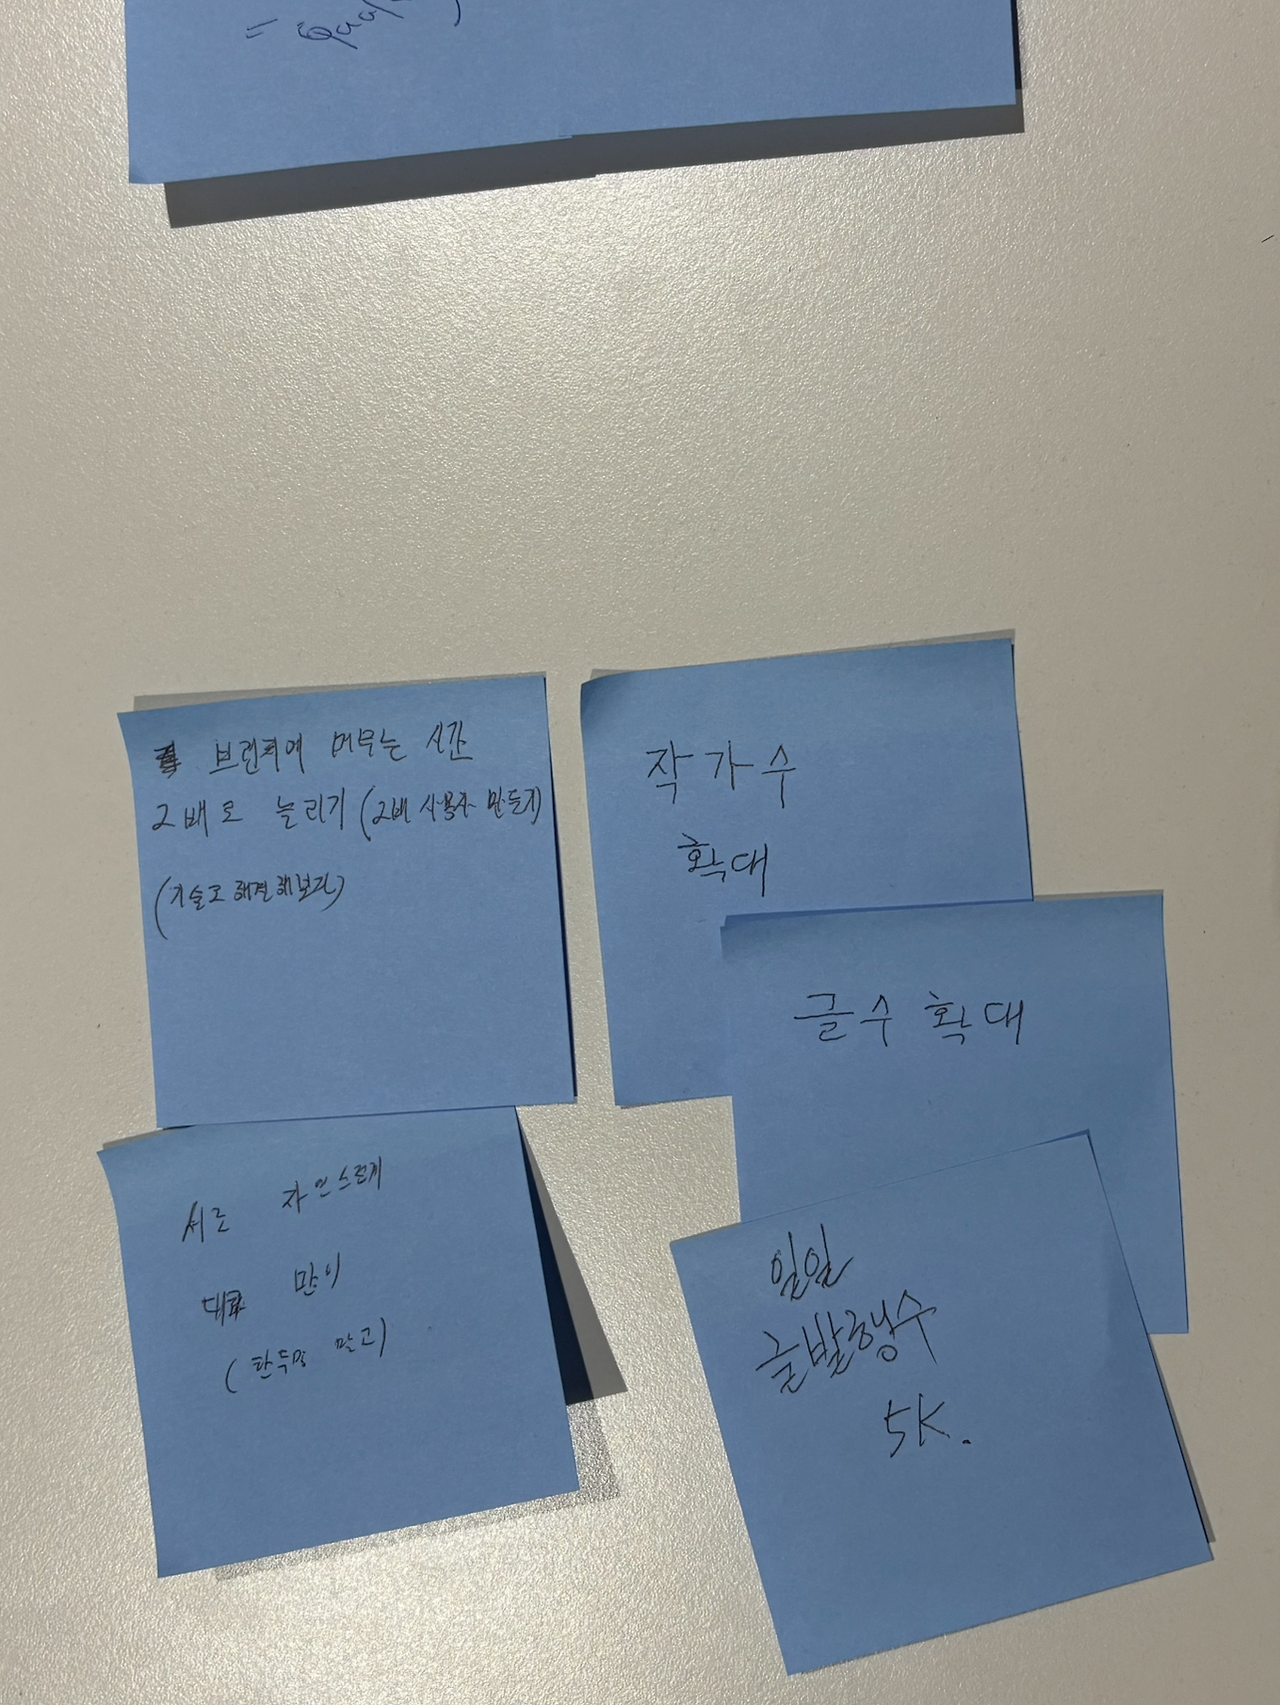 =
브런치에 머무는 시간
2배로 늘리기 (2배 사용자 만들기)
(기술로 해결해보자)
작가수
확대
글수 확대
서로 자연스럽게
대화 많이
(한두명 말고)
일일
글발행수
5K.